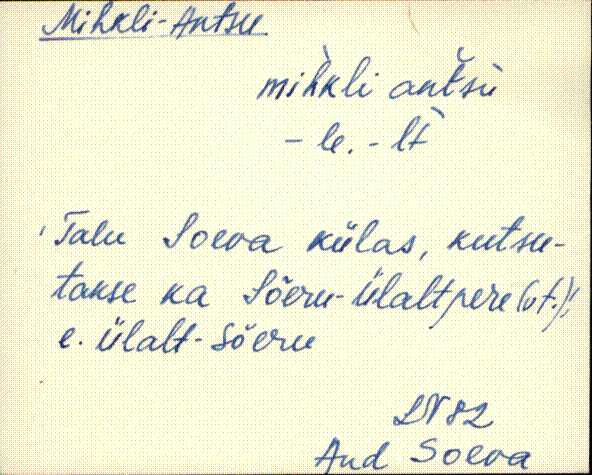 Mihkli-Antsu
mìhkli antšù
- le. - lt̀
'Talu Soeva külas, kutsu-
takse ka Sõeru-Ülaltpere (vt.)'
e. Ülalt-Sõeru
LN 82
Aud Soeva